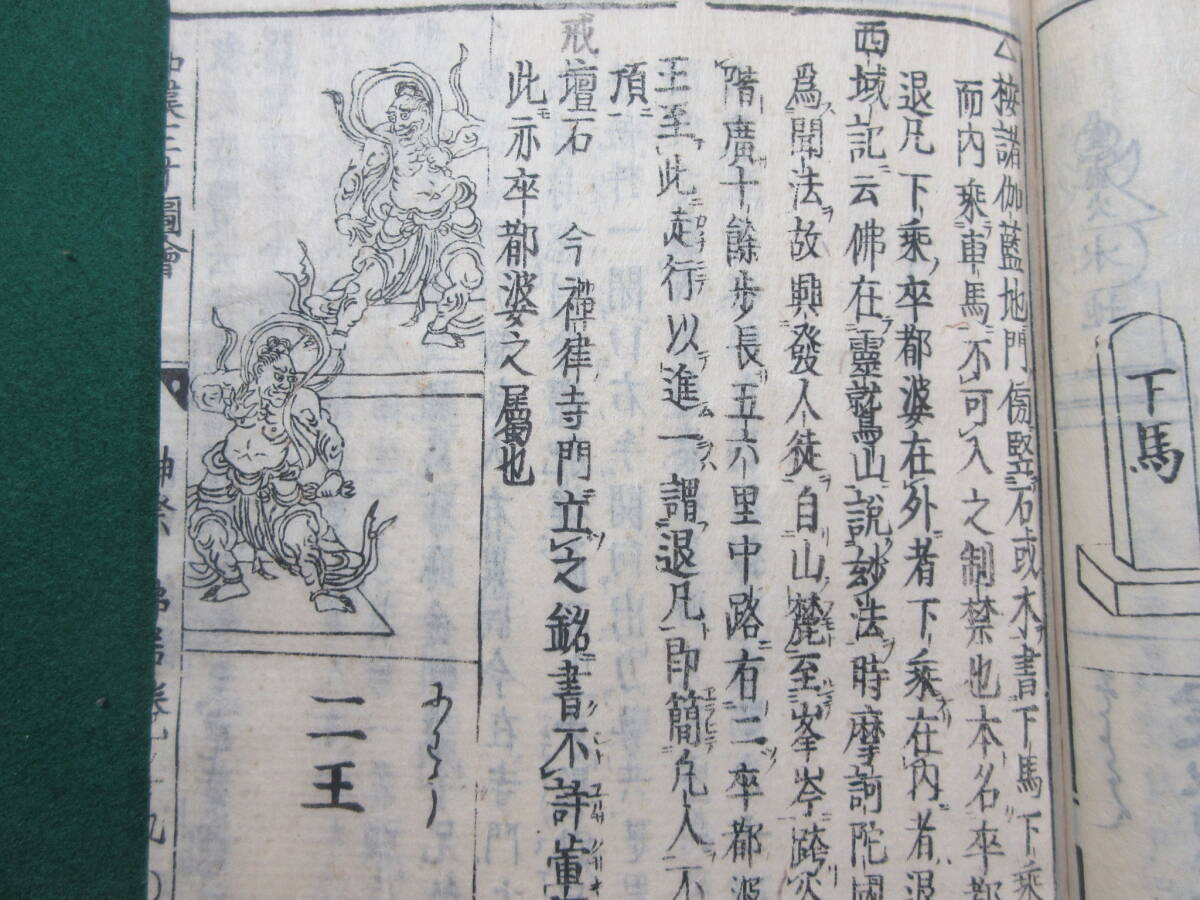 下馬
△按諸伽藍地門傍竪石或木書下馬下乘
而内乘車馬不可入之制禁也本名卒都
退凡下乘卒都婆在外者下乘在内者退
西域記云佛在靈鷲山説妙法時摩訶陀國
爲聞法故興發人徒自山麓至峯岑跨
階廣十餘歩長五六里中路有二卒都波
王至此徒行以進一謂退凡即簡凡人不
頂
戒壇石 今禪律寺門立之銘書不許葷
此亦卒都婆之屬也
にわう
二王
圖會